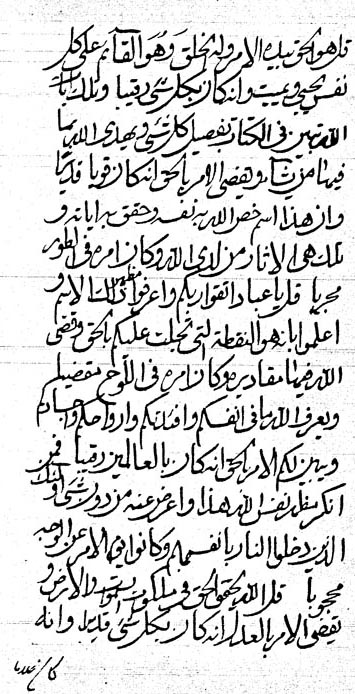 قل هو الحق بيده الامر و له الخلق و هو القائم على كل
نفس يحيى و يميت و انه كان بكل شئ رقيبا و تلك ايات
الله تبين فى الكتاب تفصيل كل شئ و يهدى الله بها
فيها من يشاء و يقضى الامر بالحق انه كان قويا قديرا
و ان هذا اسم خص الله به نفسه و حقق به اياته و
تلك هى الاثار من لدى الله و كان امره فى الطور
قل يا عباد اتقوا ربكم و اعرفوا ظهور ذلك الاسم
اعلموا بانه هو النقطة التى تجلت عليكم بالحق و قضى
الله فيها مقاديره و كان امره فى اللوح تفصيلا
و يعرف الله ما فى انفسكم و افئدتكم و ارواحكم و اجسادكم
و يبين لكم الامر بالحق انه كان بالعالمين رقيبا فمن
انكر مظهر نفس الله هذا و اعرض عنه من دون شئ اولئك
الذين دخلوا النار بانفسهم و كانوا فى الامر عن الوجه
محجوبا قل الله يحقق الحق فى ملكوت السموات و الارض و
يقضى الامر بالعدل انه كان بكل شئ قديرا و انه
كان